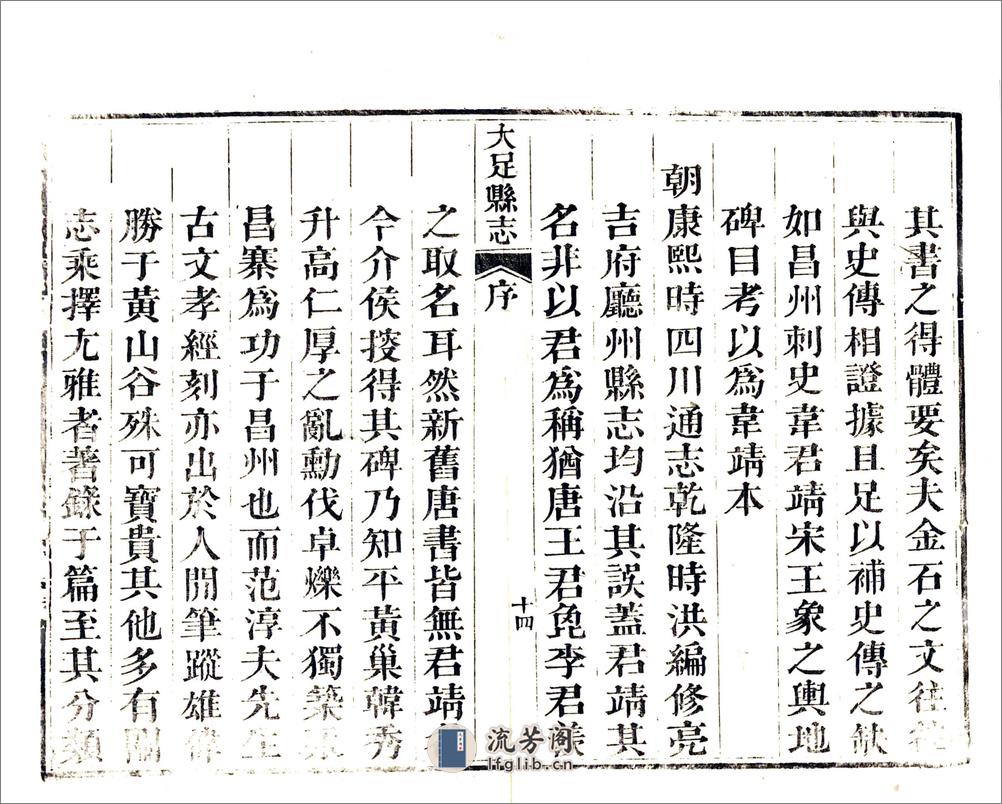 其書之得體要矣夫金石之文往往
與史傳相證據且足以補史傳之缺
如昌州刺史韋君靖宋王象之輿地
碑目考以爲韋靖本
朝康熙時四川通志乾隆時洪編修亮
吉府廳州縣志均沿其誤蓋君靖其
名非以君爲稱猶唐王君㚟李君羨
大足縣志
序
十四
之取名耳然新舊唐書皆無君靖
今介侯搜得其碑乃知平黃巢韓秀
升高仁厚之亂勳伐卓爍不獨築永
昌寨爲功于昌州也而范淳夫先生
古文孝經刻亦出於人閒筆蹤雄偉
勝于黃山谷殊可寶貴其他多有關
志乘擇尤雅者著錄于篇至其分類
流芳阁
lfglib.cn